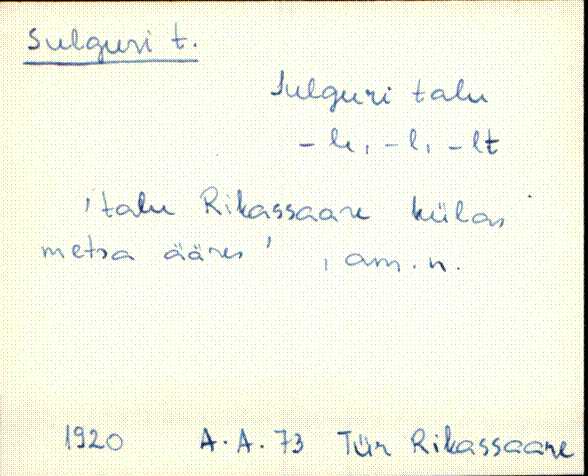 Sulguri t.
Sulguri talu
- le, - l, - lt
'talu Rikassaare külas
metsa ääres' , am. n.
1920 A. A. 73 Tür Rikassaare